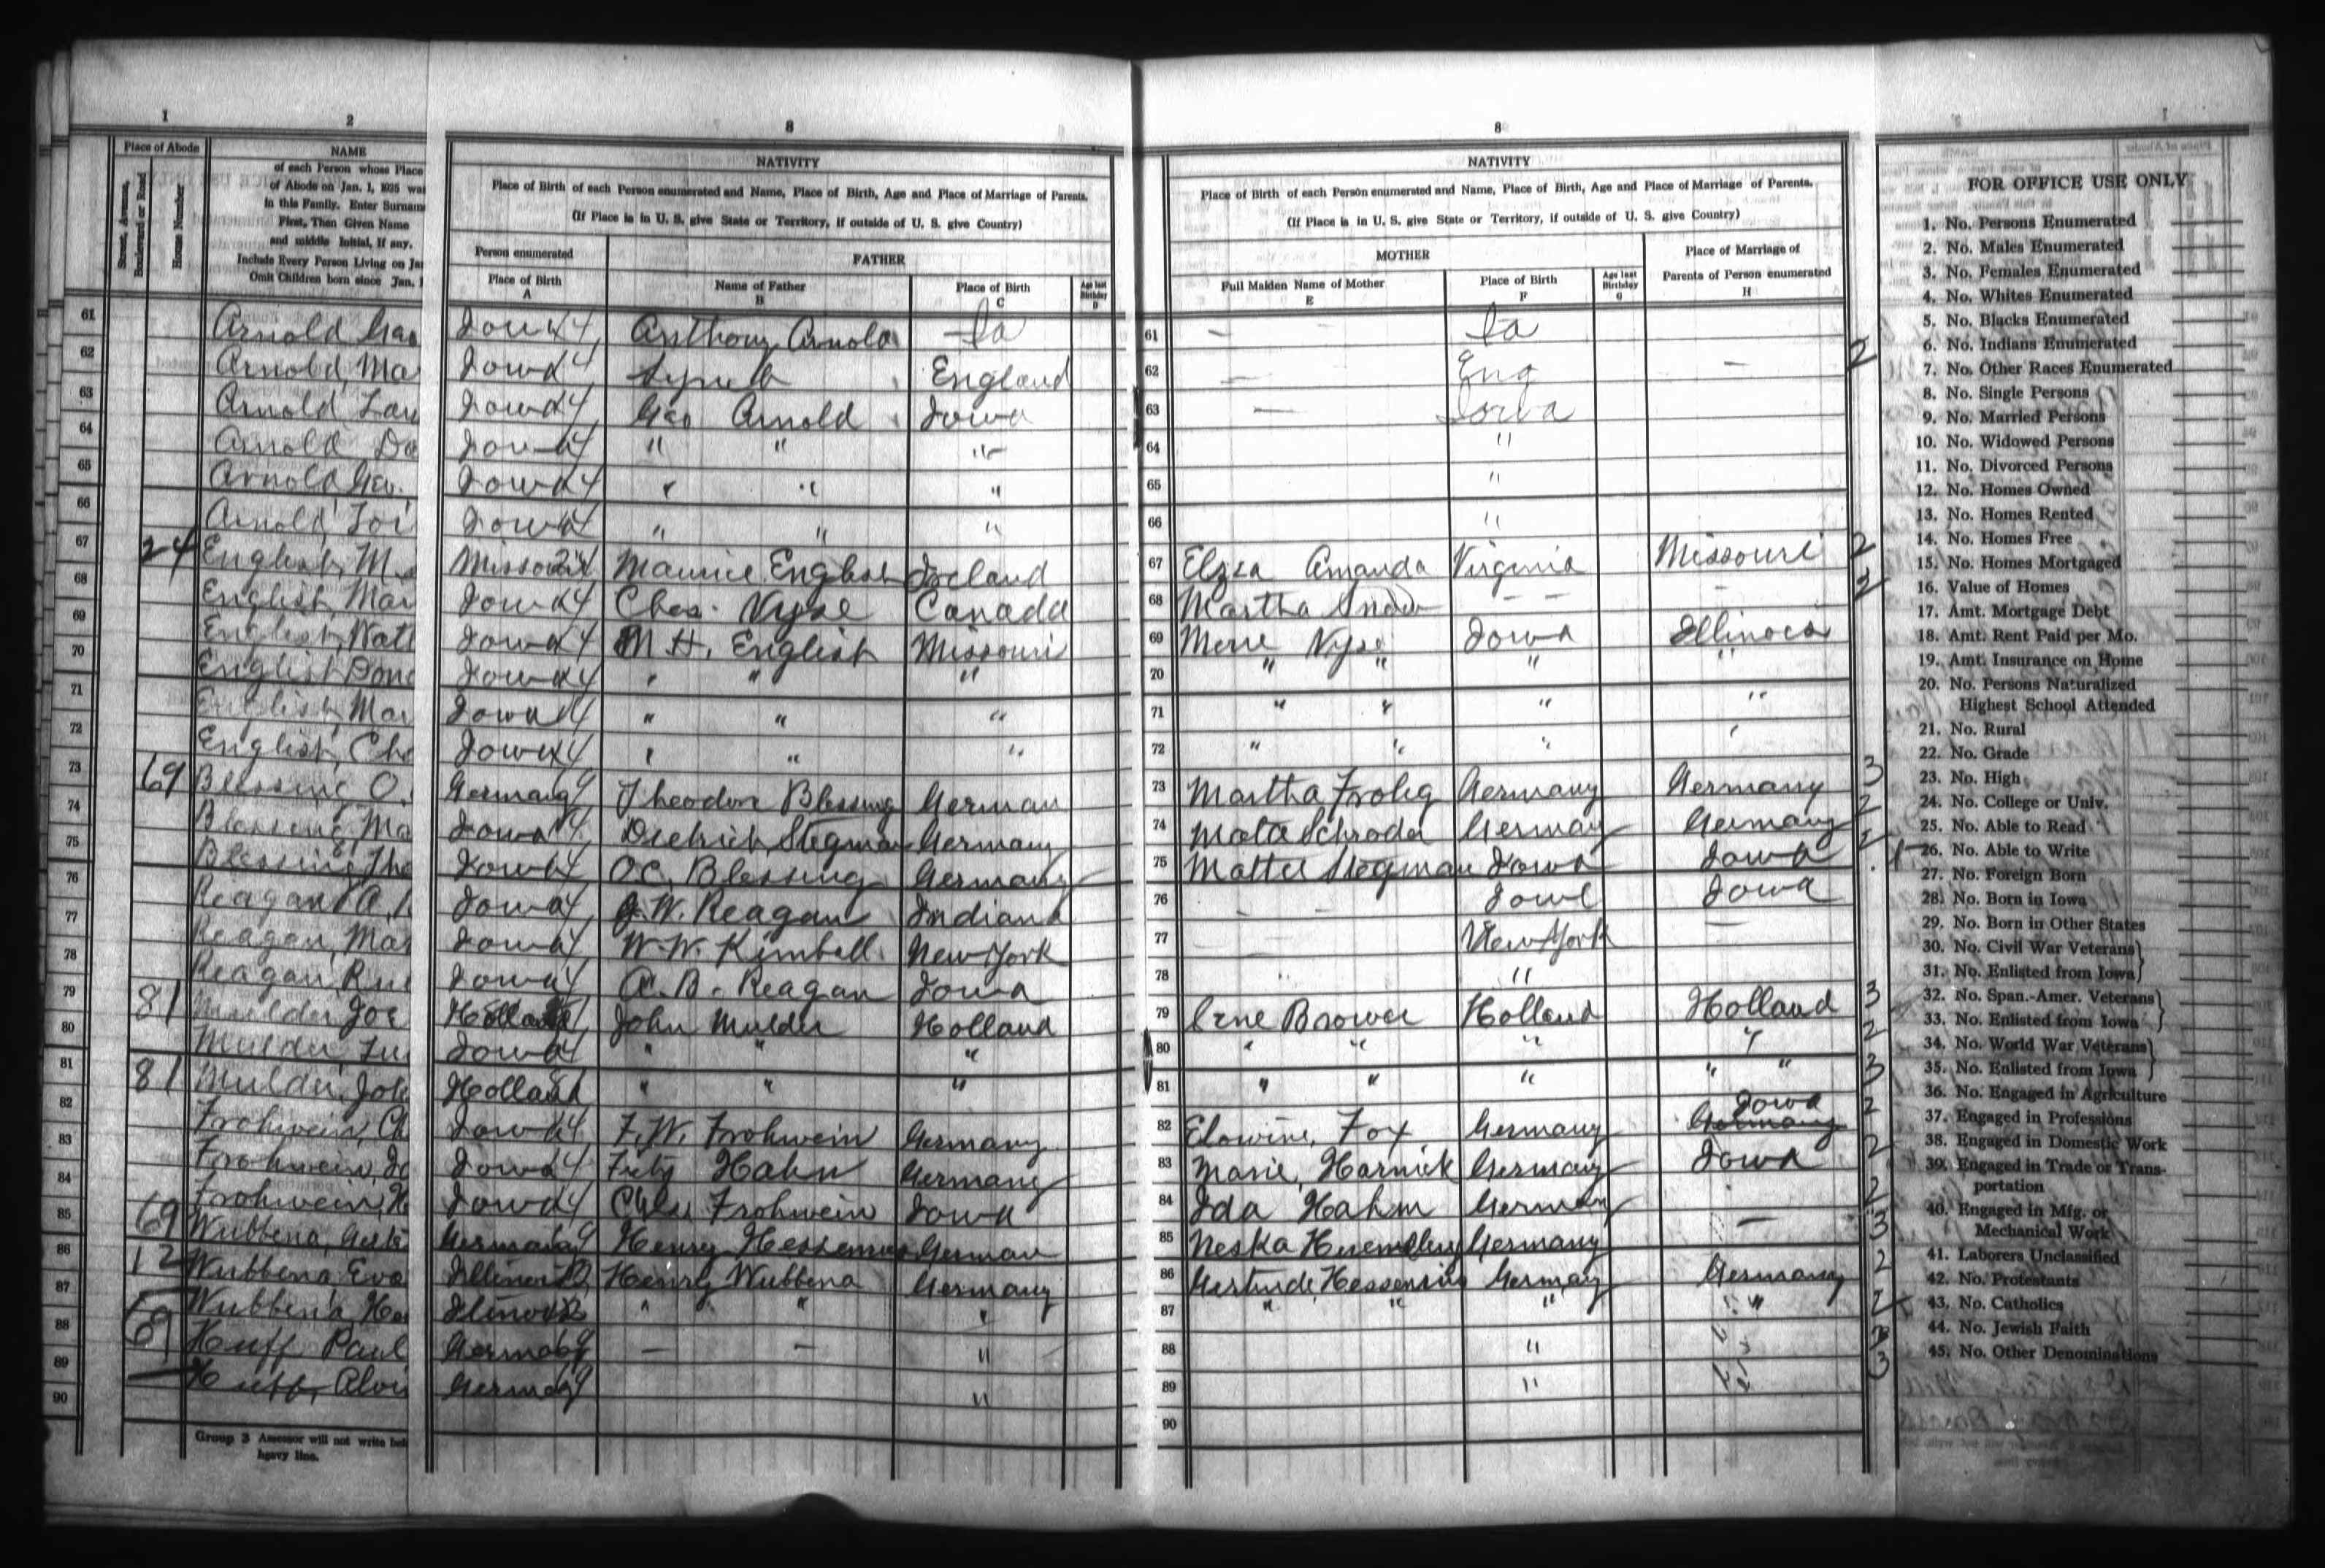 1 2 8 8
Place of Abode
Street, Avenue, Boulevard or Road
House Number
NAME
of each Person whose Place
of Abode on Jan. 1, 1925 was
in this Family. Enter Surname
First, Then Given Name
and middle Initial, if any.
Include Every Person Living on Jan
Omit Children born since Jan. 1
NATIVITY
Place of Birth of each Person enumerated and Name, Place of Birth, Age and Place of Marriage of Parents.
(If Place is in U. S. give State or Territory, if outside of U. S. give Country)
Person enumerated
Place of Birth
A
FATHER
Name of Father
B
Place of Birth
C
Age last Birthday
D
NATIVITY
Place of Birth of each Person enumerated and Name, Place of Birth, Age and Place of Marriage of Parents.
(If Place is in U. S. give State or Territory, if outside of U. S. give Country)
MOTHER
Full Maiden Name of Mother
E
Place of Birth
F
Age last Birthday
G
Place of Marriage of
Parents of Person enumerated
H
61 Arnold Geo Iowa 14 Anthony Arnold Ia 61 — Ia
62 Arnold, Ma Iowa 14 Lynch England 62 — Eng — 2
63 Arnold Lau Iowa 14 Geo Arnold Iowa 63 — Iowa
64 Arnold Do Iowa 14 " " " 64 "
65 Arnold Geo. Iowa 14 " " " 65 "
66 Arnold, Loi Iowa 14 " " " 66 "
67 24 English, M. Missouri 24 Maurice English Ireland 67 Eliza Amanda Virginia Missouri 2
68 English, Mar Iowa 14 Chas. Vyse Canada 68 Martha Snow — — — 3
69 English, Nath Iowa 14 M. H. English Missouri 69 Merre Vyse Iowa Illinois
70 English Dona Iowa 14 " " " 70 " " " "
71 English, Mar Iowa 14 " " " 71 " " " "
72 English, Cha Iowa 14 " " " 72 " " " "
73 69 Blessing O. Germany 69 Theodore Blessing German 73 Martha Frolig Germany Germany 3
74 Blessing, Ma Iowa 14 Dietrich Stegman Germany 74 Mata Schroder Germany Germany 2
75 Blessing, The Iowa 14 O.C. Blessing Germany 75 Matter Stegman Iowa Iowa 2
76 Reagan, A. Iowa 14 J. W. Reagan Indiana 76 — — Iowa Iowa
77 Reagan, Mar Iowa 14 W. W. Kimbell New York 77 — New York —
78 Reagan, Rus Iowa 14 A. B. Reagan Iowa 78 "
79 81 Mulder Joe Holland 81 John Mulder Holland 79 Brower Holland Holland 3
80 Mulder, Iowa 14 " " " 80 " " " " 2
81 81 Mulder, Joh Holland 81 " " " 81 " " " " " 3
82 Frohwein, Ch Iowa 14 F. W. Frohwein Germany 82 Elowine Fox Germany Iowa 2
83 Frohwein, Id Iowa 14 Fritz Hahn Germany 83 Marie Harnick Germany Iowa 2
84 Frohwein, H Iowa 14 Chas Frohwein Iowa 84 Ida Hahn German 2
85 69 Wubbena, Germany 69 Henry Hessenius German 85 Neska Germany — 3
86 12 Wubbena, Eva Illinois 12 Henry Wubbena Germany 86 Gertrude Hessenius Germany Germany 2
87 Wubbena, Illinois 12 " " " 87 " " " " 2
88 69 Huff Paul Germany 69 — — " 88 "
89 Huff, Alvi Germany 69 " 89 " 3
90 90
Group 3 Assessor will not write bel
heavy line.
FOR OFFICE USE ONLY
1. No. Persons Enumerated
2. No. Males Enumerated
3. No. Females Enumerated
4. No. Whites Enumerated
5. No. Blacks Enumerated
6. No. Indians Enumerated
7. No. Other Races Enumerated
8. No. Single Persons
9. No. Married Persons
10. No. Widowed Persons
11. No. Divorced Persons
12. No. Homes Owned
13. No. Homes Rented
14. No. Homes Free
15. No. Homes Mortgaged
16. Value of Homes
17. Amt. Mortgage Debt
18. Amt. Rent Paid per Mo.
19. Amt. Insurance on Home
20. No. Persons Naturalized
Highest School Attended
21. No. Rural
22. No. Grade
23. No. High
24. No. College or Univ.
25. No. Able to Read
26. No. Able to Write
27. No. Foreign Born
28. No. Born in Iowa
29. No. Born in Other States
30. No. Civil War Veterans
31. No. Enlisted from Iowa
32. No. Span.-Amer. Veterans
33. No. Enlisted from Iowa
34. No. World War Veterans
35. No. Enlisted from Iowa
36. No. Engaged in Agriculture
37. Engaged in Professions
38. Engaged in Domestic Work
39. Engaged in Trade or Trans-
portation
40. Engaged in Mfg. or
Mechanical Work
41. Laborers Unclassified
42. No. Protestants
43. No. Catholics
44. No. Jewish Faith
45. No. Other Denominations